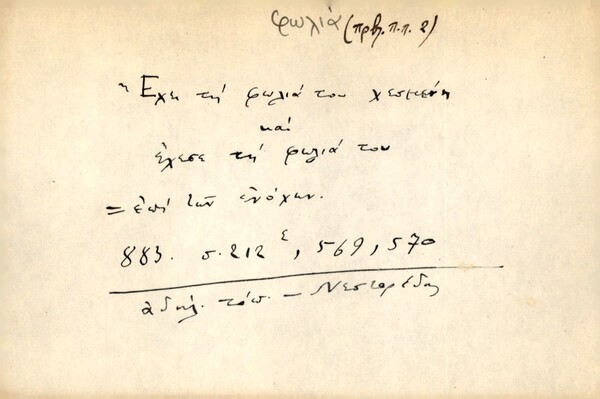 φωλιά (πρβ. π.π. 2)
"Έχει τη φωλιά του χεσμένη
και
έχεσε τη φωλιά του
= ἐπί τῶν ἐνόχων.
883. σ. 212 ς, 569, 570
ἀδήλ. τόπ. – Νεστορίδης